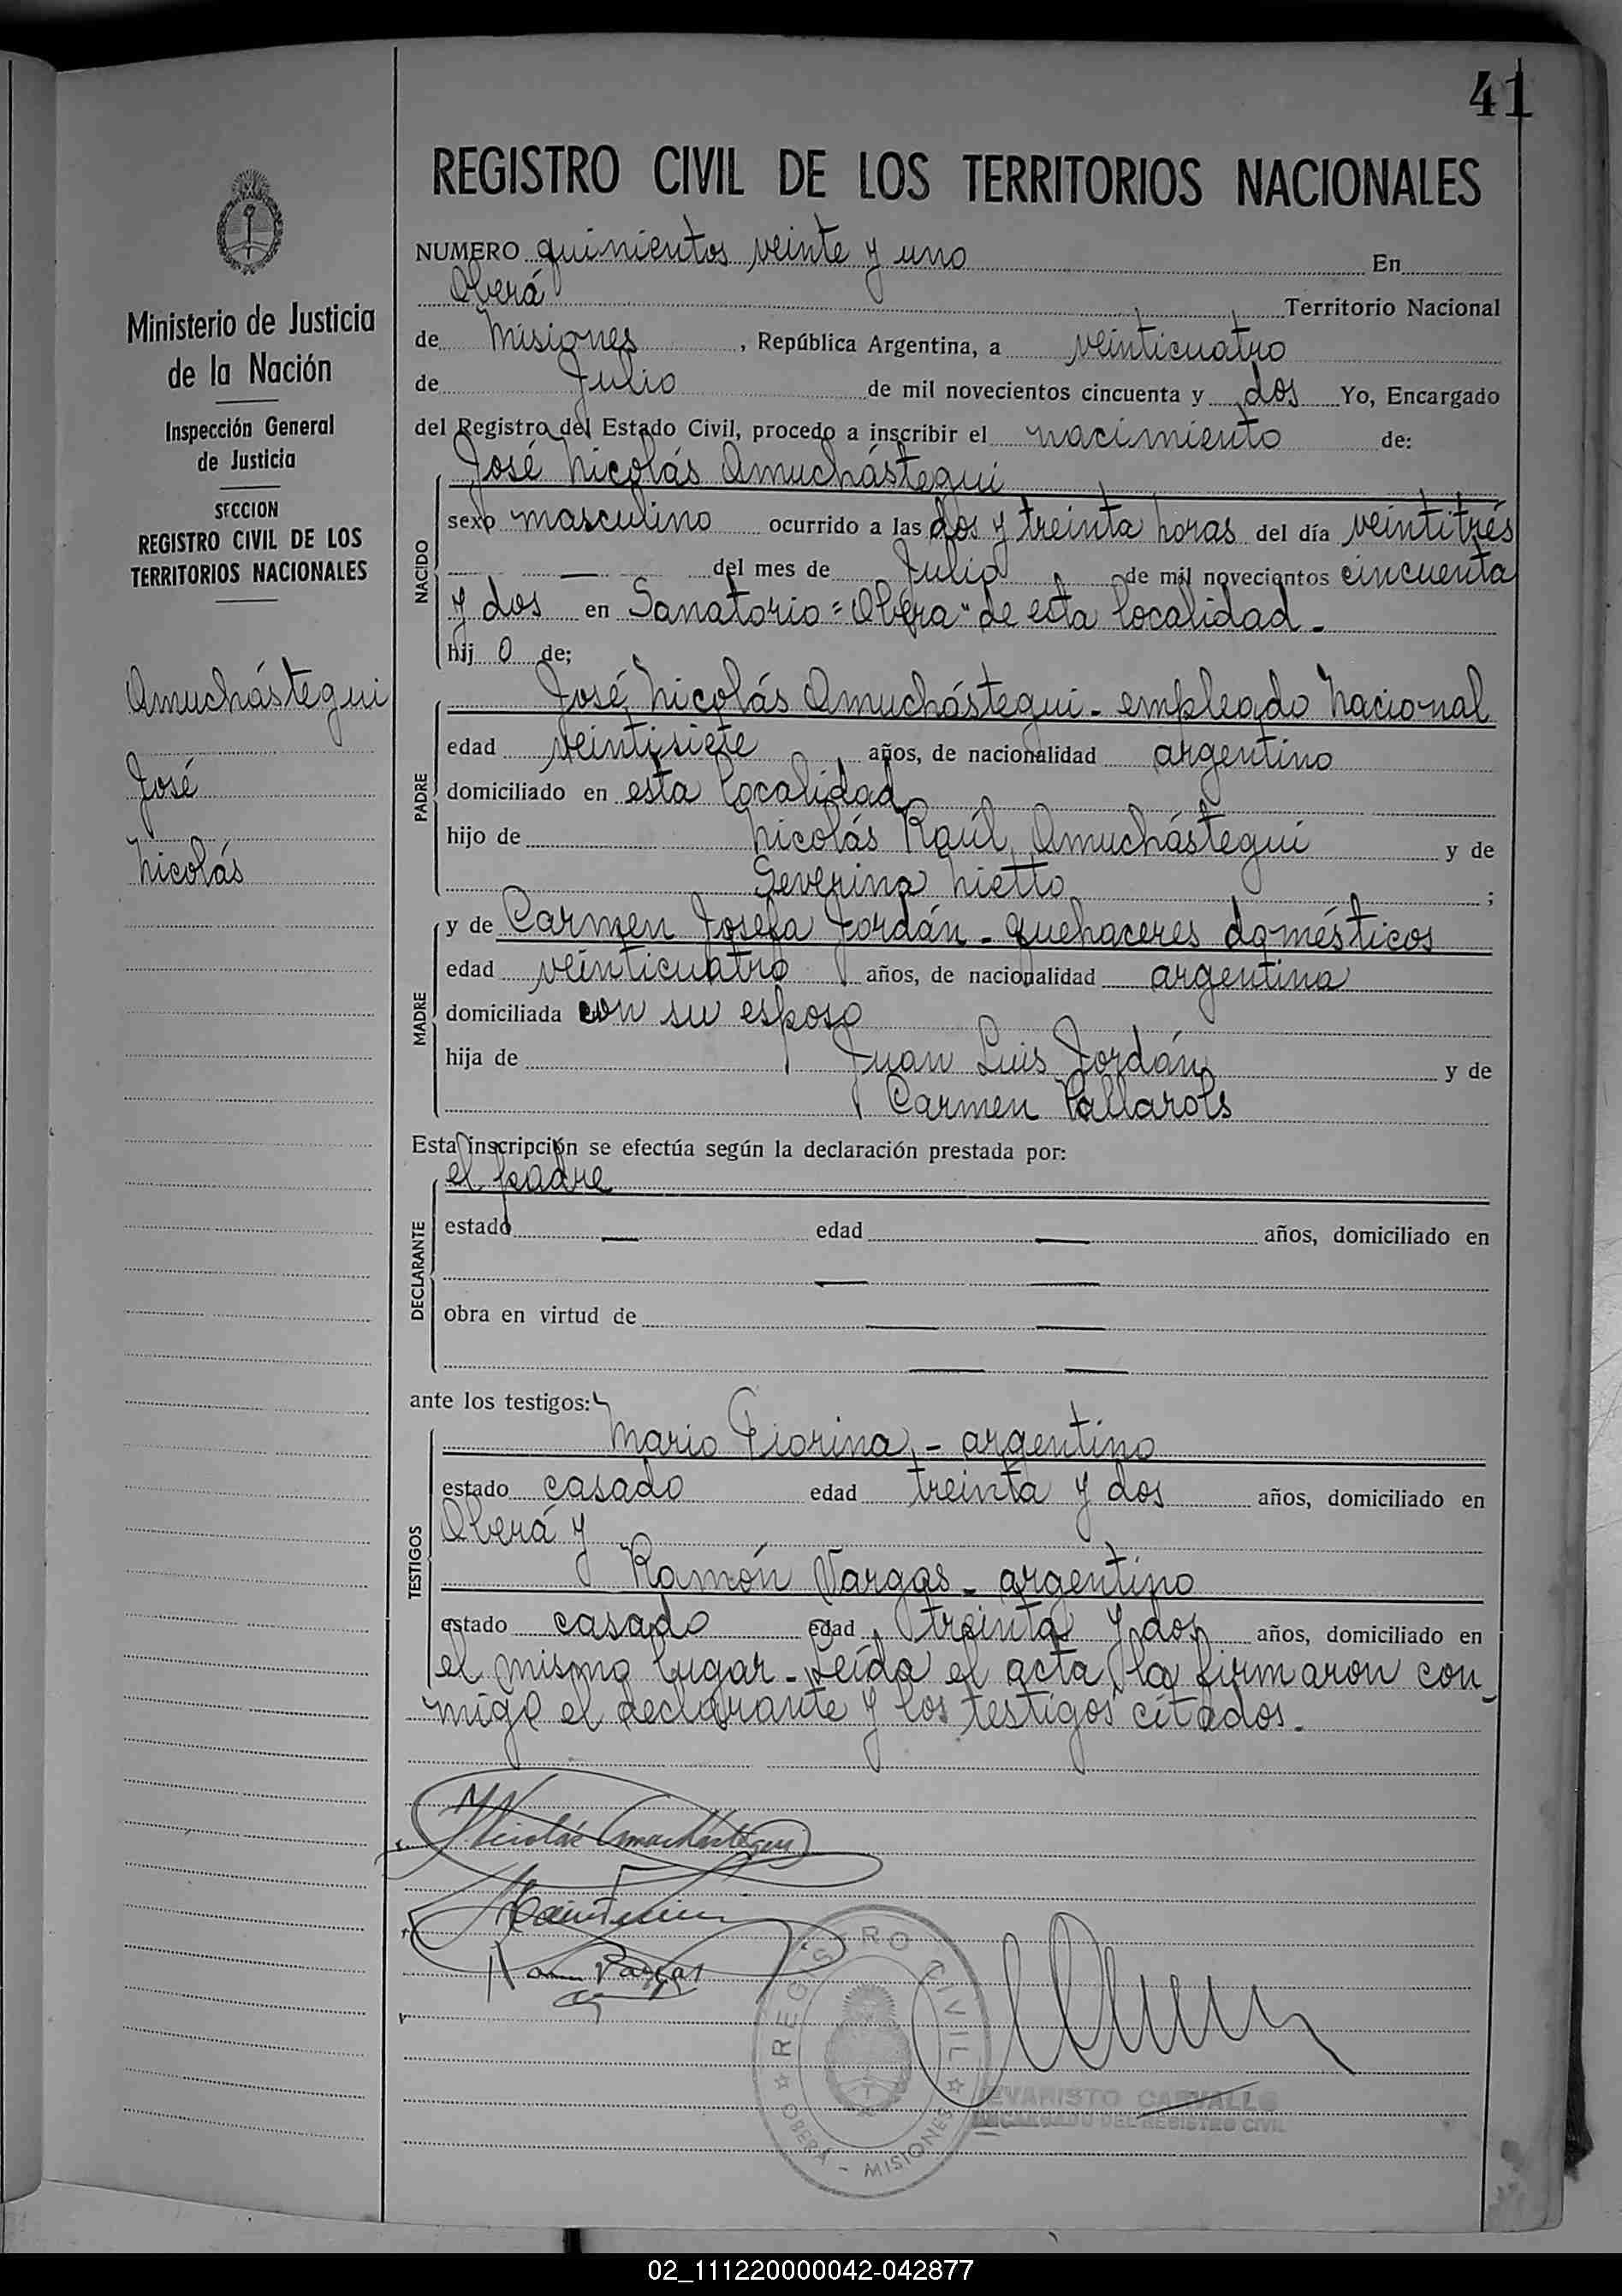 41
REGISTRO CIVIL DE LOS TERRITORIOS NACIONALES
Ministerio de Justicia
de la Nación
Inspección General
de Justicia
SECCION
REGISTRO CIVIL DE LOS
TERRITORIOS NACIONALES
Amuchástegui
José
Nicolás
NUMERO quinientos veinte y uno En
Oberá Territorio Nacional
de Misiones, República Argentina, a veinticuatro
de Julio de mil novecientos cincuenta y dos Yo, Encargado
del Registro del Estado Civil, procedo a inscribir el nacimiento de:
José Nicolás Amuchástegui
NACIDO
sexo masculino ocurrido a las dos y treinta horas del día veintitrés
— del mes de Julio de mil novecientos cincuenta
y dos en Sanatorio "Oberá" de esta localidad.
hij o de;
José Nicolás Amuchástegui - empleado Nacional
PADRE
edad veintisiete años, de nacionalidad argentino
domiciliado en esta localidad
hijo de Nicolás Raúl Amuchástegui y de
Severina Nietto ;
y de Carmen Josefa Jordán - quehaceres domésticos
MADRE
edad veinticuatro años, de nacionalidad argentina
domiciliada con su esposo
hija de Juan Luis Jordán y de
Carmen Pallarols
Esta inscripción se efectúa según la declaración prestada por:
el padre
DECLARANTE
estado — edad — años, domiciliado en
— —
obra en virtud de — —
— —
ante los testigos:
Mario Fiorina - argentino
TESTIGOS
estado casado edad treinta y dos años, domiciliado en
Oberá y
Ramón Vargas - argentino
estado casado edad treinta y dos años, domiciliado en
el mismo lugar - Leída el acta, la firmaron con-
migo el declarante y los testigos citados.
Nicolás Amuchástegui
Vargas
REGISTRO CIVIL
OBERÁ - MISIONES
EVARISTO CARVALLO
ENCARGADO DEL REGISTRO CIVIL
02_111220000042-042877